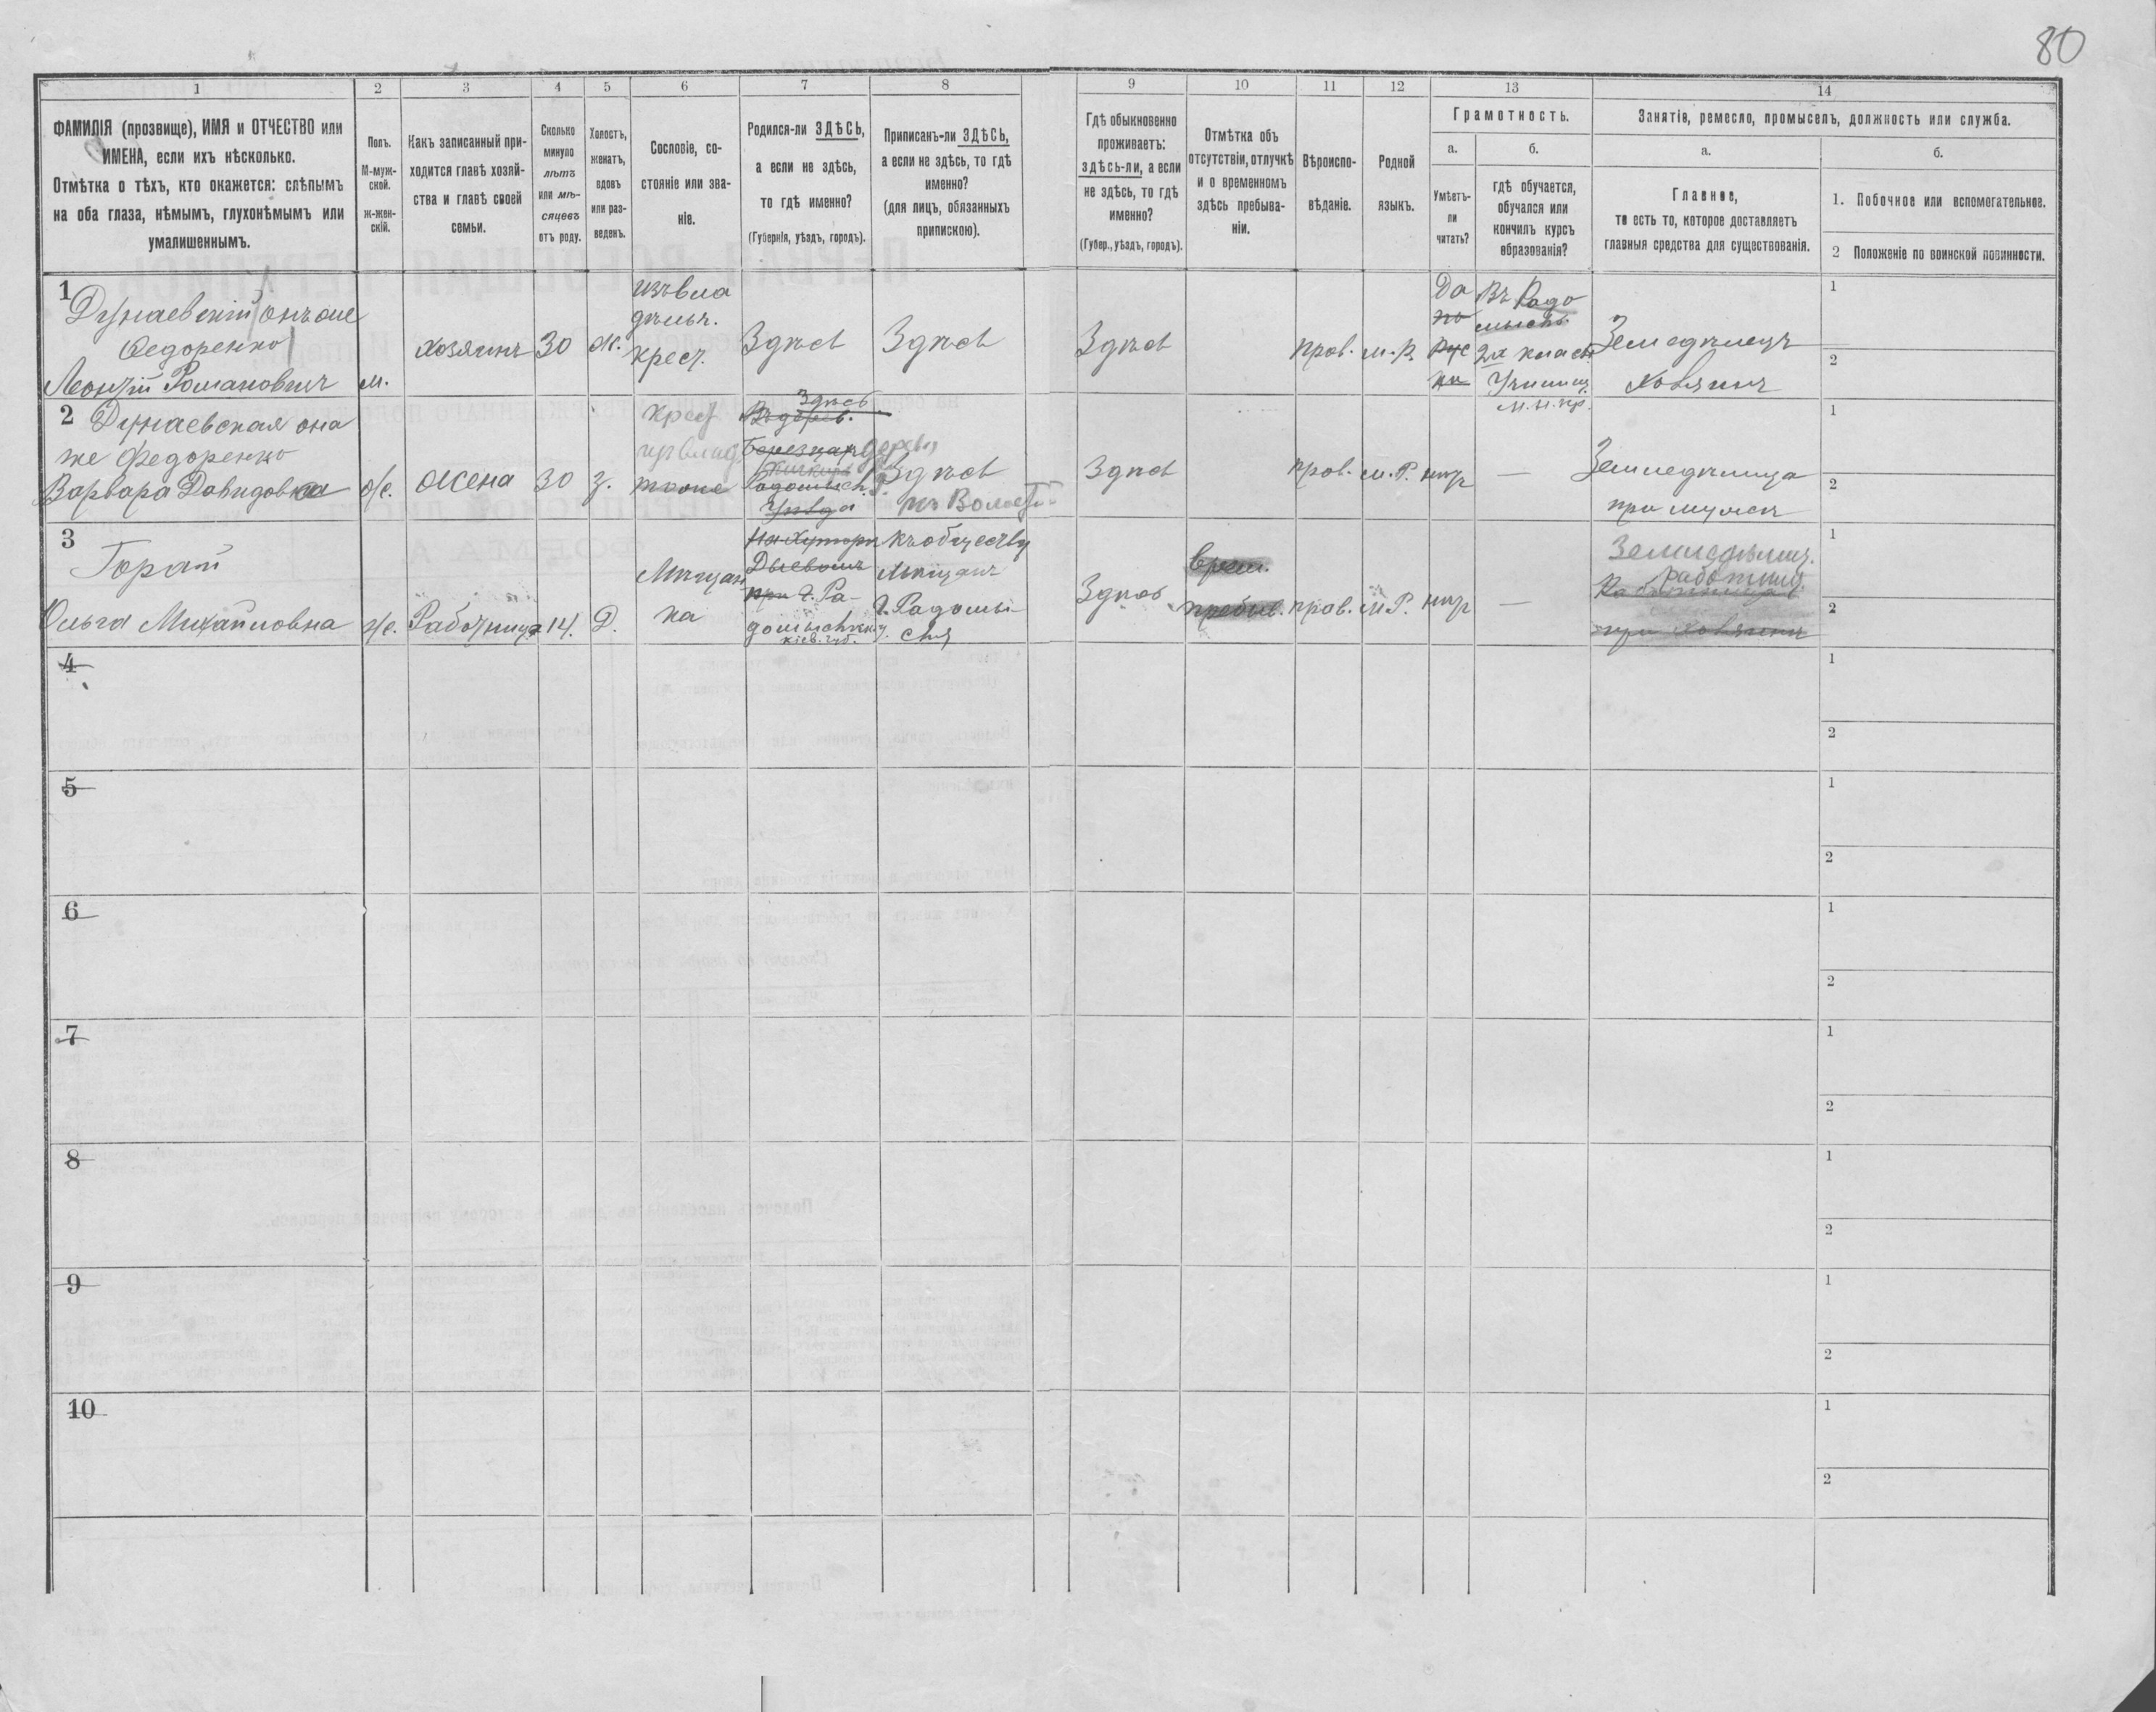 80
1
2
3
4
5
6
7
8
9
10
11
12
13
14
ФАМИЛІЯ (прозвище), ИМЯ и ОТЧЕСТВО или
ИМЕНА, если ихъ нѣсколько.
Отмѣтка о тѣхъ, кто окажется: слѣпымъ
на оба глаза, нѣмымъ, глухонѣмымъ или
умалишеннымъ.
Полъ.
М-муж-
ской.
ж-жен-
скій.
Какъ записанный при-
ходится главѣ хозяй-
ства и главѣ своей
семьи.
Сколько
минуло
лѣтъ
или мѣ-
сяцевъ
отъ роду.
Холостъ,
женатъ,
вдовъ
или раз-
веденъ.
Сословіе, со-
стояніе или зва-
ніе.
Родился-ли ЗДѢСЬ,
а если не здѣсь,
то гдѣ именно?
(Губернія, уѣздъ, городъ).
Приписанъ-ли ЗДѢСЬ,
а если не здѣсь, то гдѣ
именно?
(для лицъ, обязанныхъ
припискою).
Гдѣ обыкновенно
проживаетъ:
здѣсь-ли, а если
не здѣсь, то гдѣ
именно?
(Губер., уѣздъ, городъ).
Отмѣтка объ
отсутствіи, отлучкѣ
и о временномъ
здѣсь пребыва-
ніи.
Вѣроиспо-
вѣданіе.
Родной
языкъ.
Грамотность.
а.
Умѣетъ-
ли
читать?
б.
гдѣ обучается,
обучался или
кончилъ курсъ
образованія?
Занятіе, ремесло, промыселъ, должность или служба.
а.
Главное,
то есть то, которое доставляетъ
главныя средства для существованія.
б.
1. Побочное или вспомогательное.
2 Положеніе по воинской повинности.
1
Дунаевскій онъ же
Федоренко
Леонтій Романовичъ
м.
хозяинъ
30
ж.
изъ вла
дѣльч.
крест.
Здѣсь
Здѣсь
Здѣсь
прав.
м.р.
Да
Въ Радо
мыслѣ
2х класн
Училищ.
м.н.пр.
Земледѣлецъ
хозяинъ
1
2
2 Дунаевская она
же Федоренко
Варвара Давидовна
ж.
жена
30
з.
крест
изъ влад.
тоже
Здѣсь
Въ дерев.
Радомысл.
Уѣзда
Здѣсь
Здѣсь
прав.
м.Р.
нѣтъ
—
Земледѣлица
при мужѣ
1
2
3
Горай
Ольга Михайловна
ж.
Работница
14.
Д.
Мѣщан
ка
на хуторѣ
при г. Ра-
домыслѣ
кіев. губ.
къ обществу
мѣщанъ
г. Радомы
сля
Здѣсь
врем.
пребыв.
прав.
м.Р.
нѣтъ
—
Земледѣлич.
работница
при хозяинѣ
1
2
4
1
2
5
1
2
6
1
2
7
1
2
8
1
2
9
1
2
10
1
2